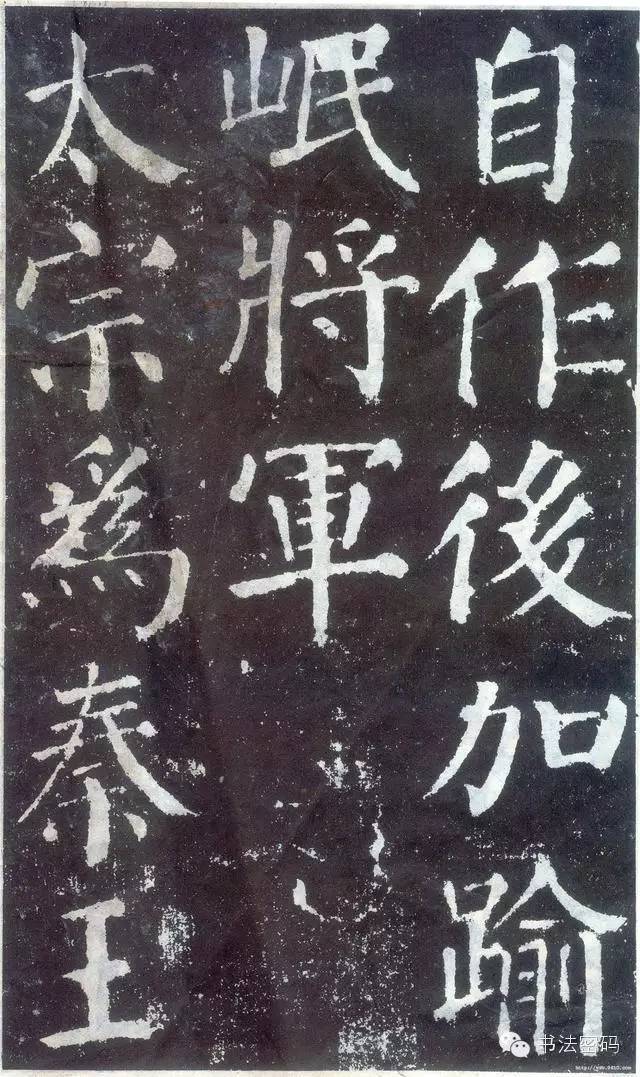 自作後加踰
岷將軍
太宗爲秦王
书法密码